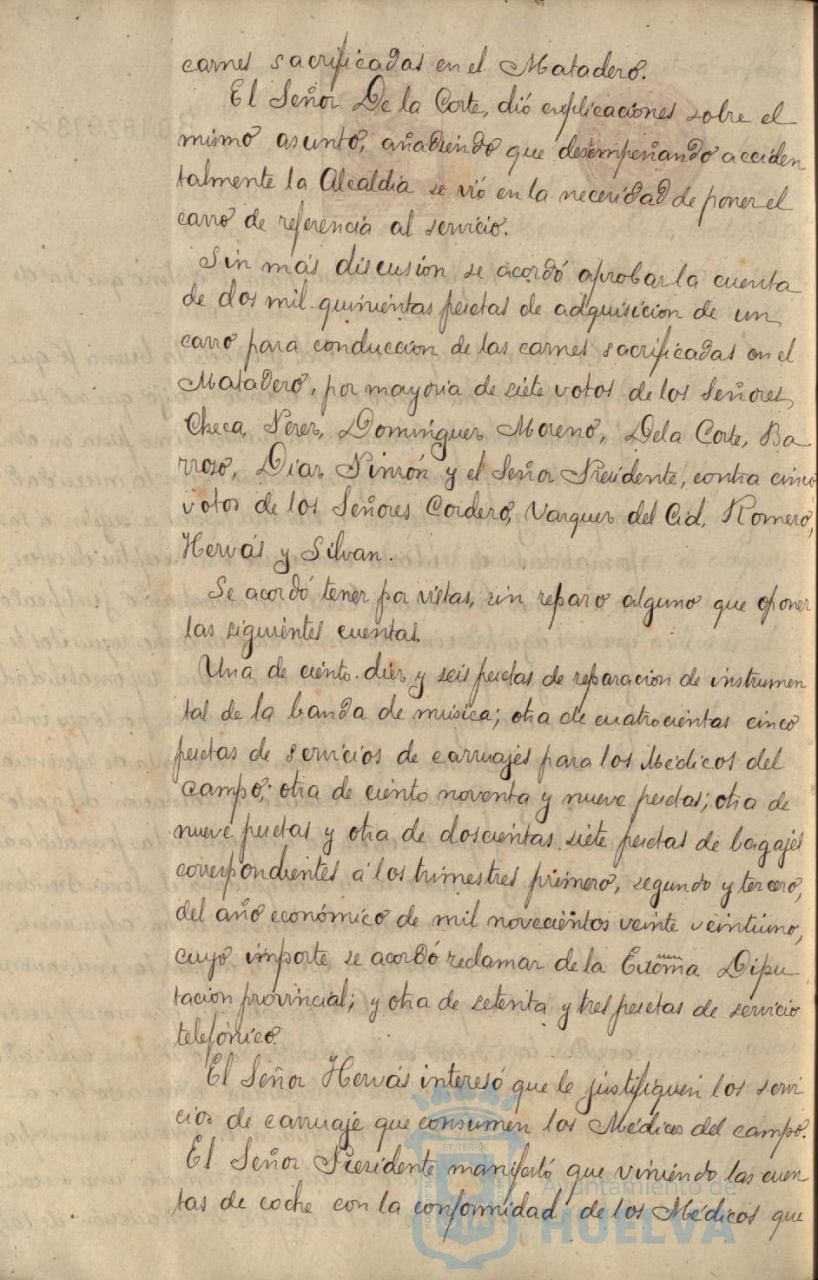 carnes sacrificadas en el Matadero.
El Señor De la Corte, dió explicaciones sobre el
mismo asunto, añadiendo que desempeñando acciden
talmente la Alcaldia se vió en la necesidad de poner el
carro de referencia al servicio.
Sin más discusion se acordó aprobar la cuenta
de dos mil quinientas pesetas de adquisicion de un
carro para conduccion de las carnes sacrificadas en el
Matadero, por mayoria de siete votos de los Señores
Checa, Perez, Dominguez Moreno, De la Corte, Ba
rroso, Diaz Pinzón y el Señor Presidente, contra cinco
votos de los Señores Cordero, Vazquez del Cid, Romero,
Hervás y Silvan.
Se acordó tener por vistas, sin reparo alguno que oponer
las siguientes cuentas.
Una de ciento diez y seis pesetas de reparacion de instrumen
tal de la banda de música; otra de cuatrocientas cinco
pesetas de servicios de carruajes para los Médicos del
campo; otra de ciento noventa y nueve pesetas; otra de
nueve pesetas y otra de doscientas siete pesetas de bagajes
correspondientes á los trimestres primero, segundo y tercero,
del año económico de mil novecientos veinte veintiuno,
cuyo importe se acordó reclamar de la Excma Dipu
tacion provincial; y otra de setenta y tres pesetas de servicio
telefónico.
El Señor Hervás interesó que le justifiquen los servi
cios de carruaje que consumen los Médicos del campo.
El Señor Presidente manifestó que viniendo las cuen
tas de coche con la conformidad de los Médicos que
Ayuntamiento de
HUELVA